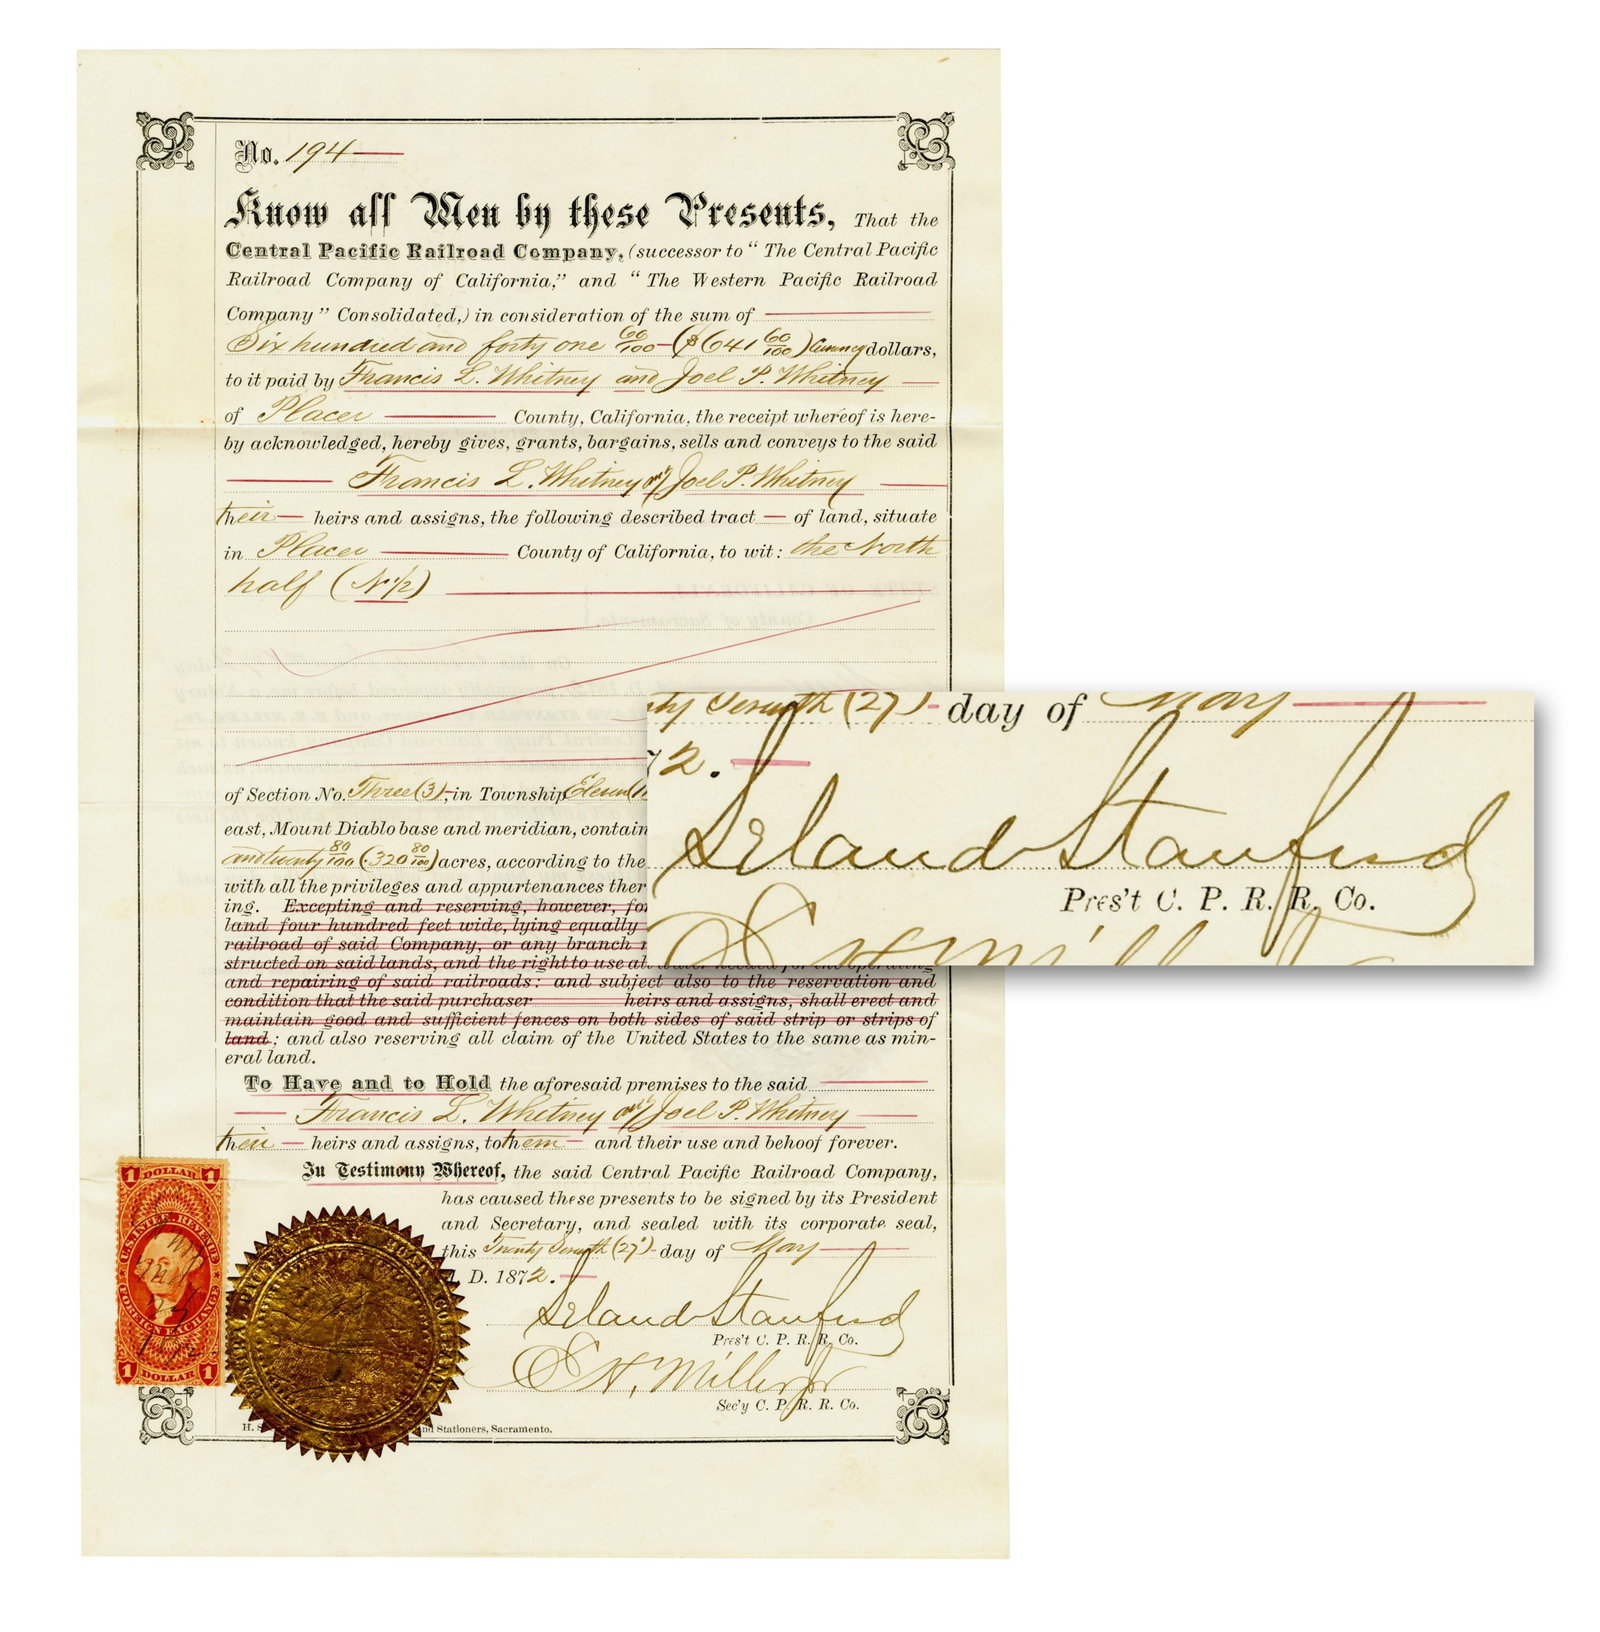 No. 194
Know all Men by these Presents, That the
Central Pacific Railroad Company, (successor to "The Central Pacific
Railroad Company of California," and "The Western Pacific Railroad
Company" Consolidated,) in consideration of the sum of
Six hundred and forty one 60/100 ($641 60/100) Currency dollars,
to it paid by Francis L. Whitney and Joel P. Whitney
of Placer County, California, the receipt whereof is here-
by acknowledged, hereby gives, grants, bargains, sells and conveys to the said
Francis L. Whitney and Joel P. Whitney
their heirs and assigns, the following described tract of land, situate
in Placer County of California, to wit: the North
half (N 1/2)
of Section No. Three (3), in Township Eleven (11
east, Mount Diablo base and meridian, contain
and twenty 80/100 (320 80/100) acres, according to the
with all the privileges and appurtenances ther
ing. Excepting and reserving, however, fo
land four hundred feet wide, lying equally
railroad of said Company, or any branch
structed on said lands, and the right to use all water needed for the operating
and repairing of said railroads: and subject also to the reservation and
condition that the said purchaser heirs and assigns, shall erect and
maintain good and sufficient fences on both sides of said strip or strips of
land; and also reserving all claim of the United States to the same as min-
eral land.
To Have and to Hold the aforesaid premises to the said
Francis L. Whitney and Joel P. Whitney
their heirs and assigns, to them and their use and behoof forever.
In Testimony Whereof, the said Central Pacific Railroad Company,
has caused these presents to be signed by its President
and Secretary, and sealed with its corporate seal,
this Twenty Seventh (27) day of May
A. D. 1872.
Leland Stanford
Pres't C. P. R. R. Co.
E H. Miller Jr
Sec'y C. P. R. R. Co.
H. S
nd Stationers, Sacramento.
1 DOLLAR 1
U.S. INTER. REVENUE
FOREIGN EXCHANGE
1 DOLLAR 1
ty Seventh (27) day of May
72.
Leland Stanford
Pres't C. P. R. R. Co.
E H Mill